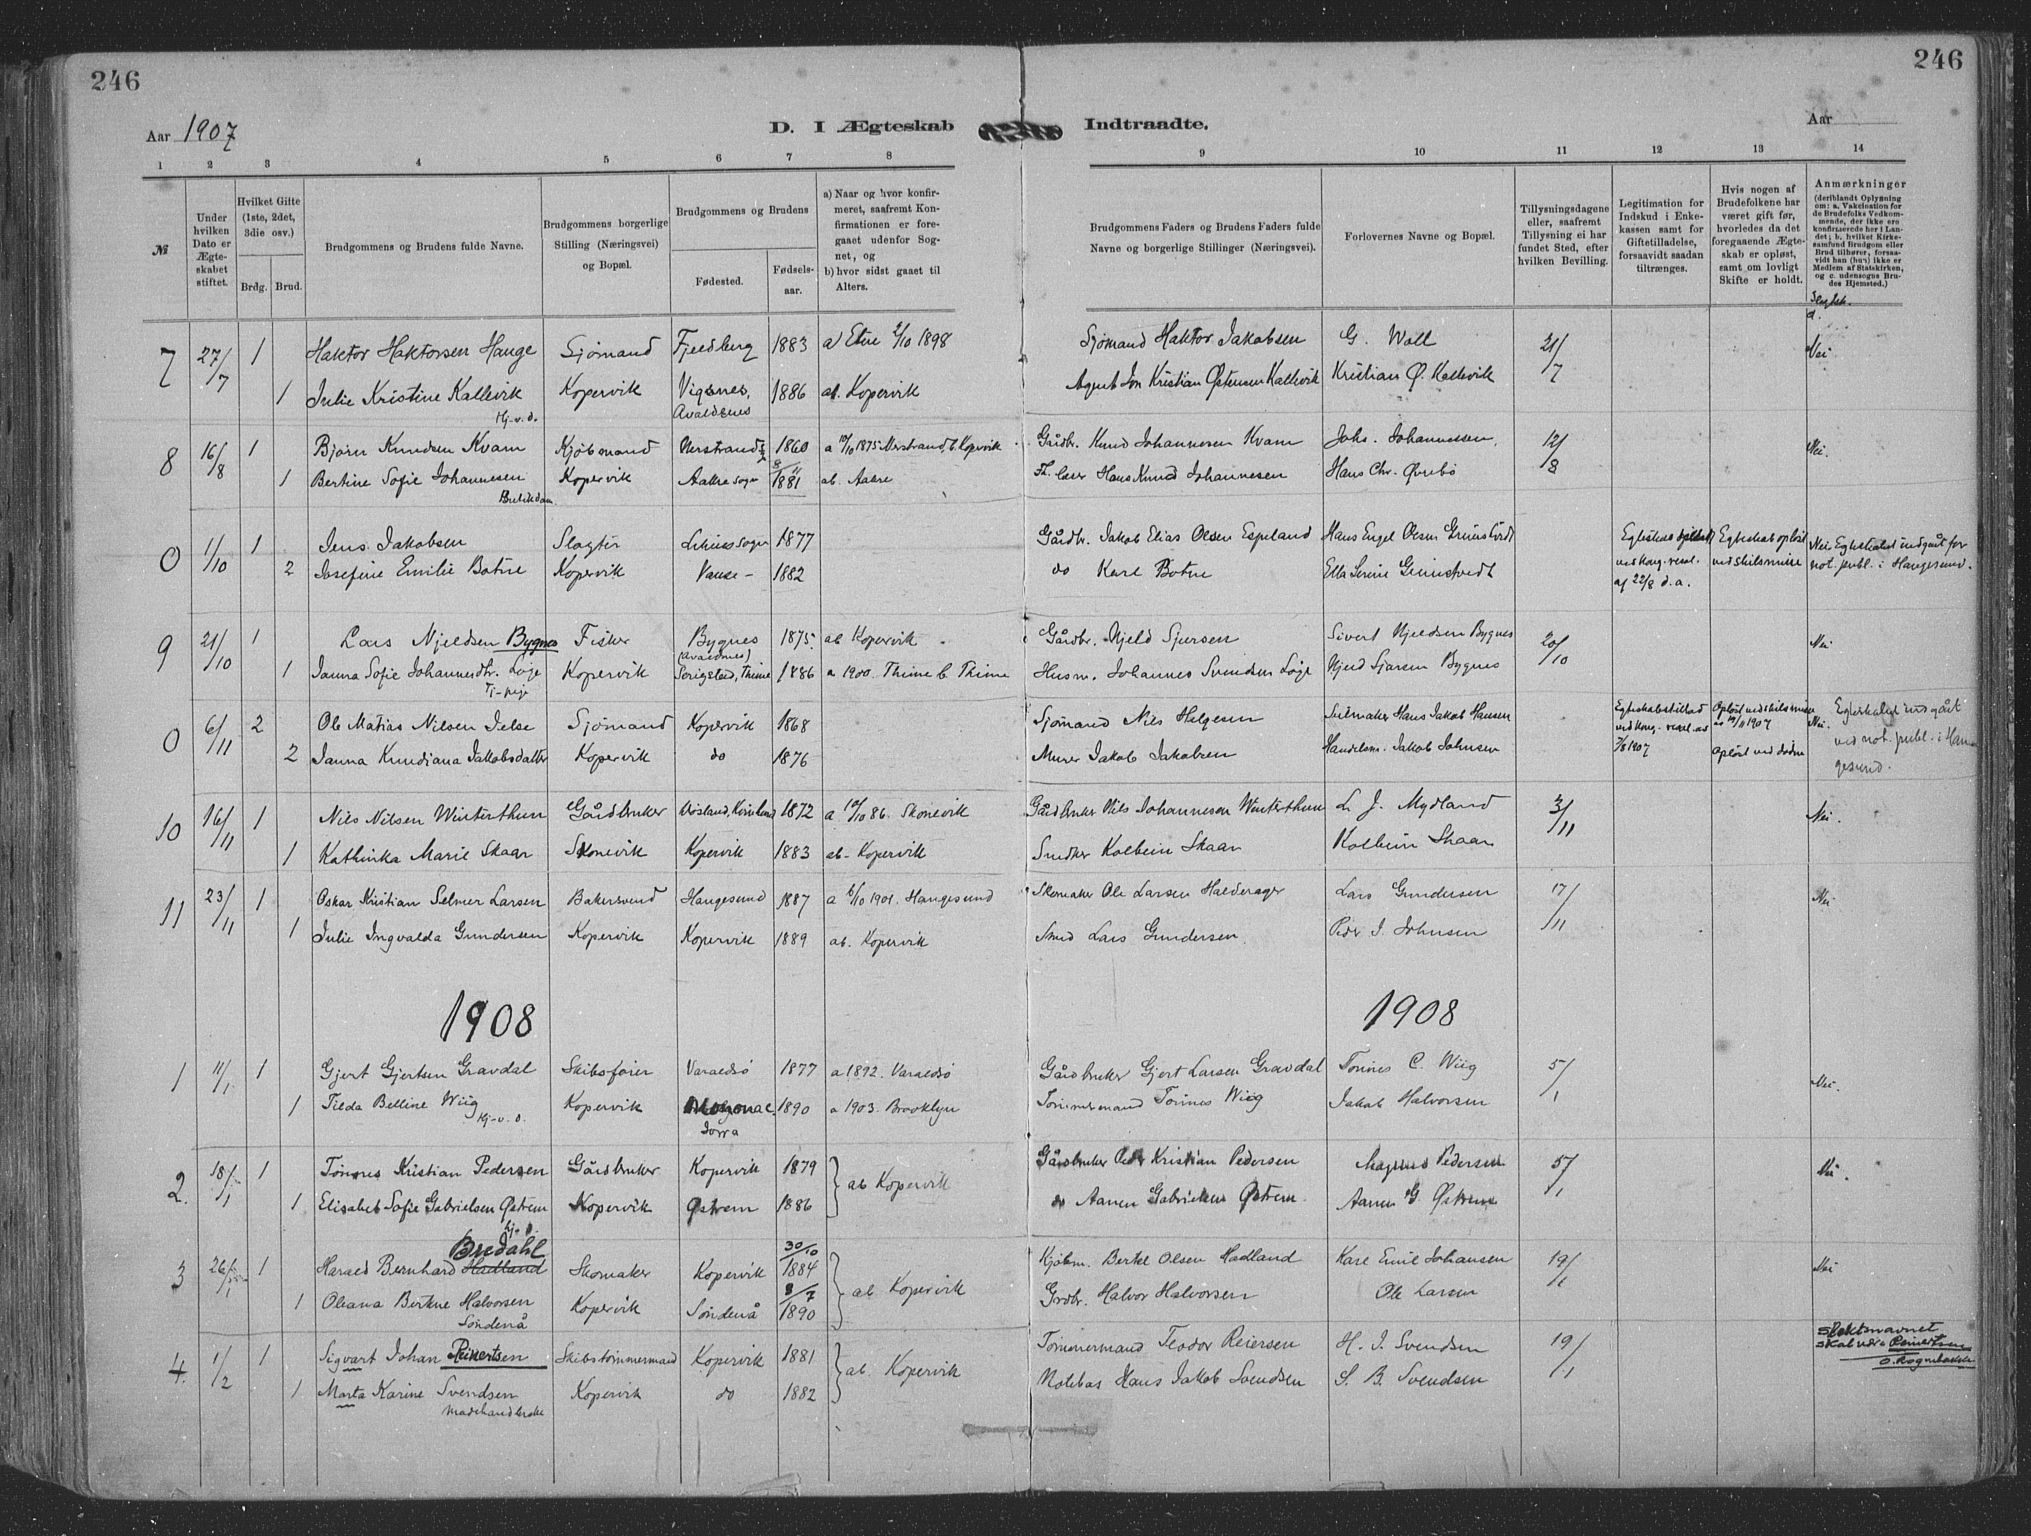 246
246
Aar 1907
D. I Ægteskab
Indtraadte.
Aar
1 2 3 4 5 6 7 8 9 10 11 12 13 14
№
Under hvilken Dato er Ægteskabet stiftet.
Hvilket Gifte (1ste, 2det, 3die osv.)
Brdg. Brud.
Brudgommens og Brudens fulde Navne.
Brudgommens borgerlige Stilling (Næringsvei) og Bopæl.
Brudgommens og Brudens
Fødested.
Fødselsaar.
a) Naar og hvor konfirmeret, saafremt Konfirmationen er foregaaet udenfor Sognet, og
b) hvor sidst gaaet til Alters.
Brudgommens Faders og Brudens Faders fulde Navne og borgerlige Stillinger (Næringsvei).
Forlovernes Navne og Bopæl.
Tillysningsdagene eller, saafremt Tillysning ei har fundet Sted, efter hvilken Bevilling.
Legitimation for Indskud i Enkekassen samt for Giftetilladelse, forsaavidt saadan tiltrænges.
Hvis nogen af Brudefolkene har været gift før, hvorledes da det foregaaende Ægteskab er opløst, samt om lovligt Skifte er holdt.
Anmærkninger (deriblandt Oplysning om: a. Vakcination for de Brudefolks Vedkommende, der ikke ere konfirmerede her i Landet; b. hvilket Kirkesamfund Brudgom eller Brud tilhører, forsaavidt han (hun) ikke er Medlem af Statskirken, og c. udensogns Brudes Hjemsted.)
7 27/7 1 Haktor Haktorsen Hauge Sjømand Fjeldberg 1883 a) Etne 2/10 1898 Sjømand Haktor Jakobsen G. Wall 21/7 Nei
1 Julie Kristine Kallevik Kopervik Vigsnes, 1886 ab. Kopervik Agent Jon Kristian Østensen Kallevik Kristian Ø. Kallevik
Hj-v.d. Avaldsnes
8 16/8 1 Bjørn Knudsen Kvam Kjøbmand Nerstrand 1860 a 10/10 1875 Nerstrand, b. Kopervik Gårdbr. Knud Johannesen Kvam Johs. Johannessen, 12/8 Nei.
1 Bertine Sofie Johannesen Kopervik Aakre sogn 8/11 1881 ab. Aakre Hans Knud Johannesen Hans Chr. Øvrebø
Butikdam.
0 1/10 1 Jens Jakobsen Slagter sogn 1877 Gårdbr. Jakob Elias Olsen Espeland Hans Engel Olsen Ægteskab opløst ved skilsmisse Nei Egteskabet indgåt for not. publ. i Haugesund.
2 Josefine Emilie Botne Kopervik Vanse - 1882 do Karl Botne Ella Serine Grimstvedt
af 22/8 d.a.
9 21/10 1 Lars Njeldsen Bygnes Fisker Bygnes 1875. ab Kopervik Gårdbr. Njeld Sjursen Sivert Njeldsen Bygnes 20/10 Nei
(Avaldsnes)
1 Janna Sofie Johannesdtr. Løge Kopervik Time 1886 a 1900. Thime b. Thime Husm. Johannes Svendsen Løge Njeld Sjursen Bygnes
0 6/11 2 Ole Matias Nilsen Jelse Sjømand Kopervik 1868 Sjømand Nils Helgesen Seilmaker Hans Jakob Hansen Egteskabstillad ved kong. resol. av 7/8 1907 Opløst ved skilsmisse av 19/11 1907 Nei. Egteskabet indgået ved not. publ. i Haugesund.
2 Janna Knudiana Jakobsdatter Kopervik do 1876 Murer Jakob Jakobsen Handelsm. Jakob Johnsen Opløst ved døden
10 16/11 1 Nils Nilsen Winterthun Gårdbruker 1872 a 10/10 86. Skonevik Gårdbruker Nils Johannesen Winterthun L. J. Mydland 3/11 Nei.
1 Kathinka Marie Skaar Skonevik Kopervik 1883 ab - Kopervik Snedker Kolbein Skaar Kolbein Skaar
11 23/11 1 Oskar Kristian Selmer Larsen Bakersvend Haugesund 1887 a 6/10 1901. Haugesund Skomaker Ole Larsen Halderager Lars Gundersen 17/11 Nei
1 Julie Ingvalda Gundersen Kopervik Kopervik 1889 ab. Kopervik Smed Lars Gundersen Peder J. Johnsen
1908
1908
1 11/1 1 Gjert Gjertsen Gravdal Skibsfører Varaldsø 1877 a 1892. Varaldsø Gårdbruker Gjert Larsen Gravdal Tønnes C. Wiig 5/1 Nei
1 Tilda Belline Wiig Kopervik 1890 a 1903. Brooklyn Tømmermand Tønnes Wiig Jakob Halvorsen
Hj-v. d.
2. 18/1 1 Tønnes Kristian Pedersen Gårdbruker Kopervik 1879 ab Kopervik Gårdbruker Peder Kristian Pedersen Magnus Pedersen 5/1 Nei.
1 Elisabet Sofie Gabrielsen Østrem Kopervik Østrem 1886 do Aanen Gabrielsen Østrem Aanen G Østrem
Hj. d.
Bredahl
3 26/1 1 Harald Bernhard Hadland Skomaker Kopervik 30/10 1884 ab Kopervik Kjøbm. Bertel Olsen Hadland Karl Emil Johansen 19/1 Nei
1 Oleana Bertine Halvorsen Kopervik Søndenå 8/7 1890 Grdbr. Halvor Halvorsen Ole Larsen
Søndenå
4. 1/2 1 Sigvart Johan Reinertsen Skibstømmermand Kopervik 1881 ab. Kopervik Tømmermand Teodor Reiersen H. J. Svendsen 19/1 Slektsnavnet skal være Reinertsen
1 Marta Karine Svendsen Kopervik do 1882 Notebas Hans Jakob Svendsen S. B. Svendsen